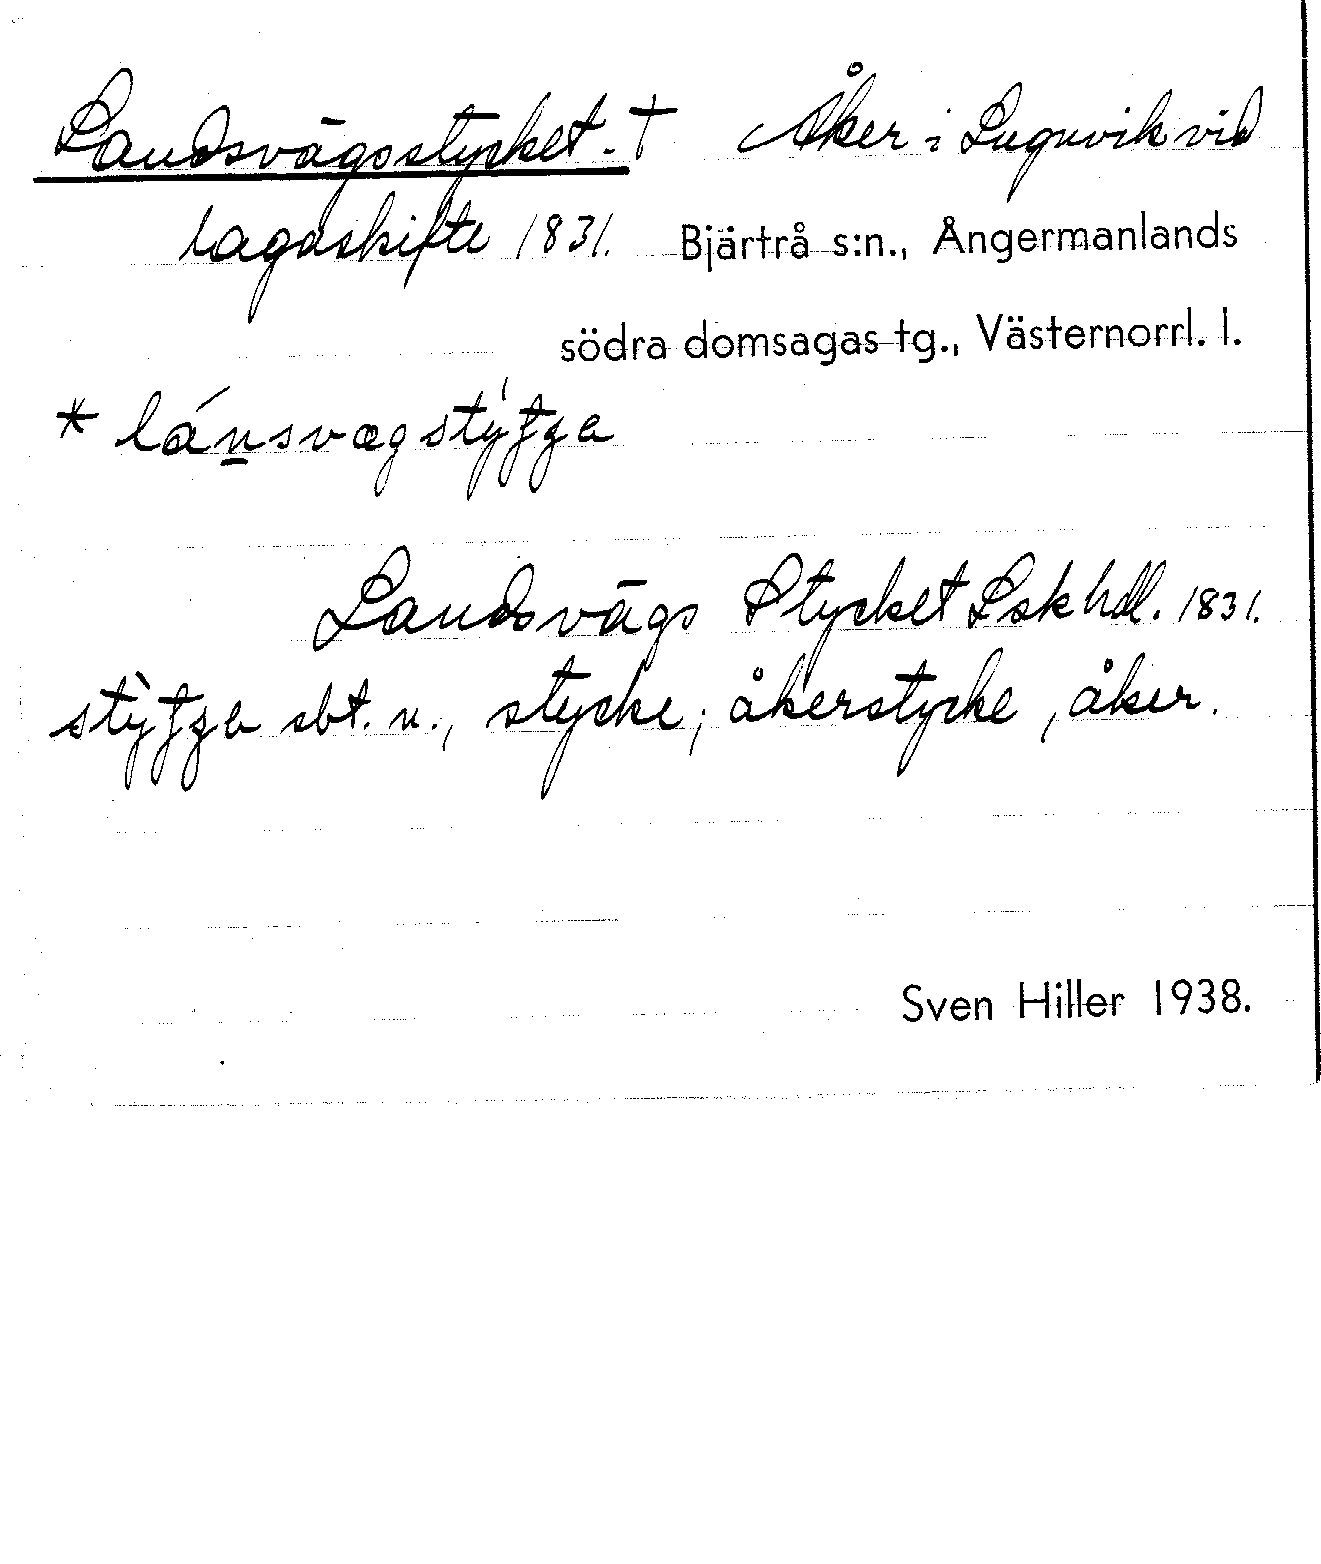 Landsvägsstycket. † Åker i Lugnvik vid
lagaskifte 1831. Bjärtrå s:n., Ångermanlands
södra domsagas tg., Västernorrl. l.
* lánsvægstýtʒa
Landsvägs Stycket Lsk hdl. 1831.
stỳtʒa sbt. n., stycke; åkerstycke, åker.
Sven Hiller 1938.